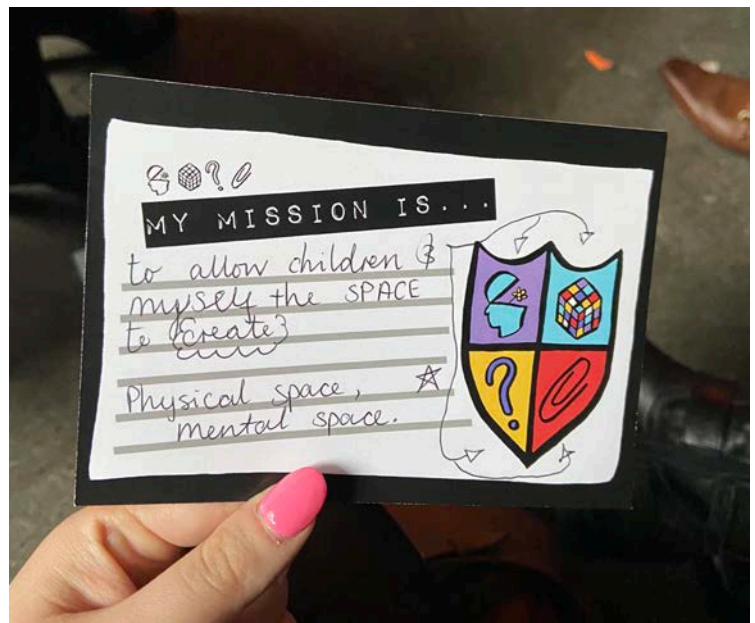 MY MISSION IS...
to allow children &
myself the SPACE
to {Create}
Physical space,
mental space.